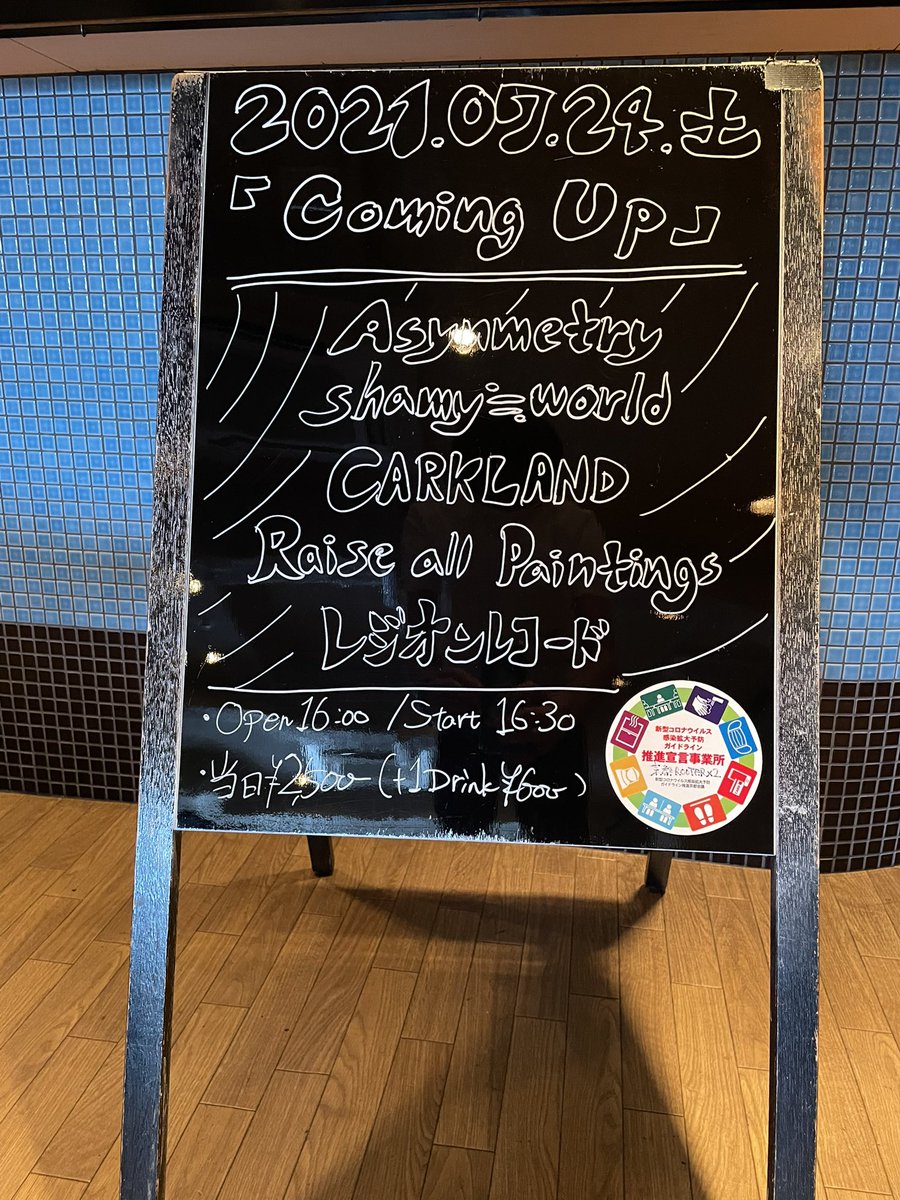 2021.07.24.土
『Coming Up』
Asymmetry
shamy≒world
CARKLAND
Raise all Paintings
レジオンレコード
・Open 16:00 / Start 16:30
・当日¥2,500-(+1Drink¥600)
新型コロナウイルス
感染拡大予防
ガイドライン
推進宣言事業所
京都ROOTER×2
新型コロナウイルス感染拡大予防
ガイドライン推進京都会議